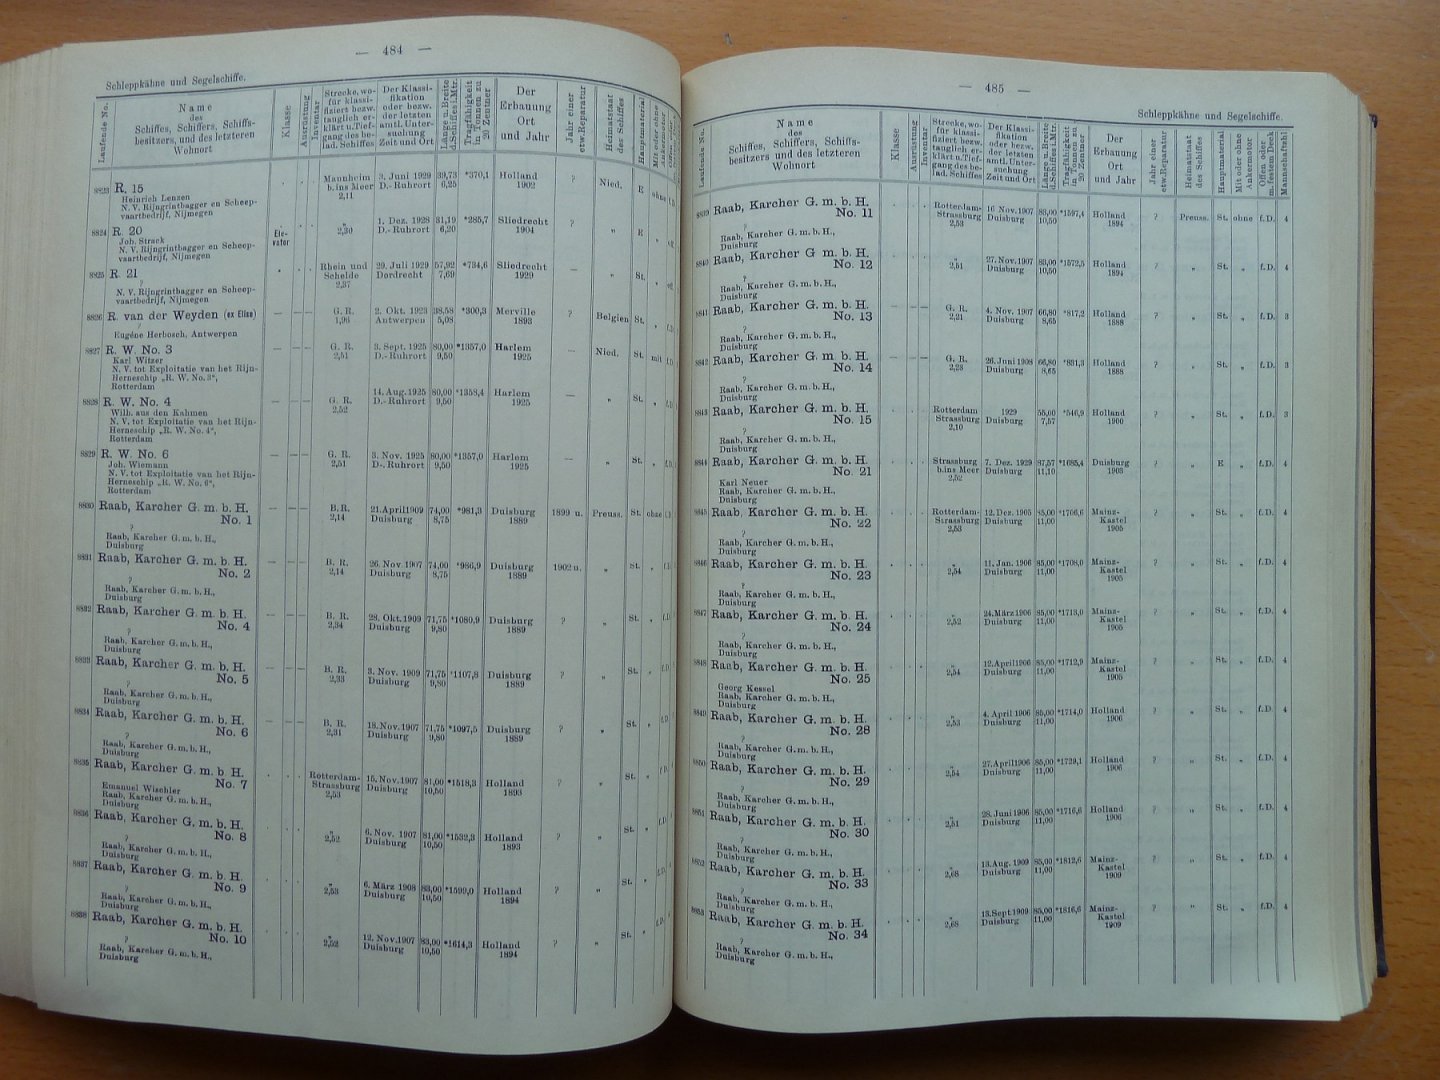 — 484 —
Schleppkähne und Segelschiffe.
Laufende No.
Name
des
Schiffes, Schiffers, Schiffs-
besitzers, und des letzteren
Wohnort
Klasse
Ausrüstung
Inventar
Strecke, wo-
für klassi-
fiziert bezw.
tauglich er-
klärt u. Tief-
gang des be-
lad. Schiffes
Der Klassi-
fikation
oder bezw.
der letzten
amtl. Unter-
suchung
Zeit und Ort
Länge u. Breite
d. Schiffes i. Mtr.
Tragfähigkeit
in Tonnen zu
20 Zentner
Der
Erbauung
Ort
und Jahr
Jahr einer
etw. Reparatur
Heimatstaat
des Schiffes
Hauptmaterial
Mit oder ohne
Ankermotor
8823 R. 15 Mannheim 3. Juni 1929 39,73 *370,1 Holland Nied. E ohne
Heinrich Lenzen b. ins Meer D.-Ruhrort 6,25 1902
N. V. Rijngrintbagger en Scheep- 2,11
vaartbedrijf, Nijmegen
8824 R. 20 Ele- „ 1. Dez. 1928 31,19 *285,7 Sliedrecht ? „ E
Joh. Strack vator 2,30 D.-Ruhrort 6,20 1904
N. V. Rijngrintbagger en Scheep-
vaartbedrijf, Nijmegen
8825 R. 21 Rhein und 29. Juli 1929 57,92 *734,6 Sliedrecht — „ St.
? Schelde Dordrecht 7,69 1929
N. V. Rijngrintbagger en Scheep- 2,37
vaartbedrijf, Nijmegen
8826 R. van der Weyden (ex Elise) — — — G. R. 2. Okt. 1923 38,58 *300,3 Merville ? Belgien St. „
? 1,96 Antwerpen 5,08 1893
Eugéne Herbosch, Antwerpen
8827 R. W. No. 3 — — — G. R. 3. Sept. 1925 80,00 *1357,0 Harlem — Nied. St. mit
Karl Witzer 2,51 D.-Ruhrort 9,50 1925
N. V. tot Exploitatie van het Rijn-
Herneschip „R. W. No. 3“,
Rotterdam
8828 R. W. No. 4 — — — G. R. 14. Aug. 1925 80,00 *1358,4 Harlem — „ St. „
Wilh. aus den Kahmen 2,52 D.-Ruhrort 9,50 1925
N. V. tot Exploitatie van het Rijn-
Herneschip „R. W. No. 4“,
Rotterdam
8829 R. W. No. 6 — — — G. R. 3. Nov. 1925 80,00 *1357,0 Harlem — „ St. „
Joh. Wiemann 2,51 D.-Ruhrort 9,50 1925
N. V. tot Exploitatie van het Rijn-
Herneschip „R. W. No. 6“,
Rotterdam
8830 Raab, Karcher G. m. b. H. — — — B. R. 21. April 1909 74,00 *981,3 Duisburg 1899 u. Preuss. St. ohne
No. 1 2,14 Duisburg 8,75 1889
?
Raab, Karcher G. m. b. H.,
Duisburg
8831 Raab, Karcher G. m. b. H. — — — B. R. 26. Nov. 1907 74,00 *986,9 Duisburg 1902 u. „ St. „
No. 2 2,14 Duisburg 8,75 1889
?
Raab, Karcher G. m. b. H.,
Duisburg
8832 Raab, Karcher G. m. b. H. — — — B. R. 28. Okt. 1909 71,75 *1080,9 Duisburg ? „ St. „
No. 4 2,34 Duisburg 9,80 1889
?
Raab, Karcher G. m. b. H.,
Duisburg
8833 Raab, Karcher G. m. b. H. — — — B. R. 3. Nov. 1909 71,75 *1107,8 Duisburg ? „ St. „
No. 5 2,33 Duisburg 9,80 1889
?
Raab, Karcher G. m. b. H.,
Duisburg
8834 Raab, Karcher G. m. b. H. — — — B. R. 18. Nov. 1907 71,75 *1097,5 Duisburg ? „ St. „
No. 6 2,31 Duisburg 9,80 1889
?
Raab, Karcher G. m. b. H.,
Duisburg
8835 Raab, Karcher G. m. b. H. Rotterdam- 15. Nov. 1907 81,00 *1518,3 Holland ? „ St. „
No. 7 Strassburg Duisburg 10,50 1893
Emanuel Wischler 2,53
Raab, Karcher G. m. b. H.,
Duisburg
8836 Raab, Karcher G. m. b. H. „ 6. Nov. 1907 81,00 *1532,3 Holland ? „ St. „
No. 8 2,52 Duisburg 10,50 1893
?
Raab, Karcher G. m. b. H.,
Duisburg
8837 Raab, Karcher G. m. b. H. „ 6. März 1908 83,00 *1599,0 Holland ? „ St. „
No. 9 2,53 Duisburg 10,50 1894
?
Raab, Karcher G. m. b. H.,
Duisburg
8838 Raab, Karcher G. m. b. H. „ 12. Nov. 1907 83,00 *1614,3 Holland ? „ St. „
No. 10 2,52 Duisburg 10,50 1894
?
Raab, Karcher G. m. b. H.,
Duisburg
— 485 —
Schleppkähne und Segelschiffe.
Laufende No.
Name
des
Schiffes, Schiffers, Schiffs-
besitzers und des letzteren
Wohnort
Klasse
Ausrüstung
Inventar
Strecke, wo-
für klassi-
fiziert bezw.
tauglich er-
klärt u. Tief-
gang des be-
lad. Schiffes
Der Klassi-
fikation
oder bezw.
der letzten
amtl. Unter-
suchung
Zeit und Ort
Länge u. Breite
d. Schiffes i. Mtr.
Tragfähigkeit
in Tonnen zu
20 Zentner
Der
Erbauung
Ort
und Jahr
Jahr einer
etw. Reparatur
Heimatstaat
des Schiffes
Hauptmaterial
Mit oder ohne
Ankermotor
Offen oder
m. festem Deck
Mannschaftzahl
8839 Raab, Karcher G. m. b. H. Rotterdam- 16 Nov. 1907 83,00 *1597,4 Holland ? Preuss. St. ohne f. D. 4
No. 11 Strassburg Duisburg 10,50 1894
? 2,53
Raab, Karcher G. m. b. H.,
Duisburg
8840 Raab, Karcher G. m. b. H. „ 27. Nov. 1907 83,00 *1572,5 Holland ? „ St. „ f. D. 4
No. 12 2,51 Duisburg 10,50 1894
?
Raab, Karcher G. m. b. H.,
Duisburg
8841 Raab, Karcher G. m. b. H. — — — G. R. 4. Nov. 1907 66,80 *817,2 Holland ? „ St. „ f. D. 3
No. 13 2,21 Duisburg 8,65 1888
?
Raab, Karcher G. m. b. H.,
Duisburg
8842 Raab, Karcher G. m. b. H. — — — G. R. 26. Juni 1908 66,80 *831,3 Holland ? „ St. „ f. D. 3
No. 14 2,23 Duisburg 8,65 1888
?
Raab, Karcher G. m. b. H.,
Duisburg
8843 Raab, Karcher G. m. b. H. Rotterdam 1929 55,00 *546,9 Holland ? „ St. „ f. D. 3
No. 15 Strassburg Duisburg 7,57 1900
? 2,10
Raab, Karcher G. m. b. H.,
Duisburg
8844 Raab, Karcher G. m. b. H. Strassburg 7. Dez. 1929 87,57 *1685,4 Duisburg ? „ E „ f. D. 4
No. 21 b. ins Meer Duisburg 11,10 1903
Karl Neuer 2,52
Raab, Karcher G. m. b. H.,
Duisburg
8845 Raab, Karcher G. m. b. H. Rotterdam- 12. Dez. 1905 85,00 *1706,6 Mainz- ? „ St. „ f. D. 4
No. 22 Strassburg Duisburg 11,00 Kastel
? 2,53 1905
Raab, Karcher G. m. b. H.,
Duisburg
8846 Raab, Karcher G. m. b. H. „ 11. Jan. 1906 85,00 *1708,0 Mainz- ? „ St. „ f. D. 4
No. 23 2,54 Duisburg 11,00 Kastel
? 1905
Raab, Karcher G. m. b. H.,
Duisburg
8847 Raab, Karcher G. m. b. H. „ 24. März 1906 85,00 *1713,0 Mainz- ? „ St. „ f. D. 4
No. 24 2,52 Duisburg 11,00 Kastel
? 1905
Raab, Karcher G. m. b. H.,
Duisburg
8848 Raab, Karcher G. m. b. H. „ 12. April 1906 85,00 *1712,9 Mainz- ? „ St. „ f. D. 4
No. 25 2,54 Duisburg 11,00 Kastel
Georg Kessel 1905
Raab, Karcher G. m. b. H.,
Duisburg
8849 Raab, Karcher G. m. b. H. „ 4. April 1906 85,00 *1714,0 Holland ? „ St. „ f. D. 4
No. 28 2,53 Duisburg 11,00 1906
?
Raab, Karcher G. m. b. H.,
Duisburg
8850 Raab, Karcher G. m. b. H. „ 27. April 1906 85,00 *1729,1 Holland ? „ St. „ f. D. 4
No. 29 2,54 Duisburg 11,00 1906
?
Raab, Karcher G. m. b. H.,
Duisburg
8851 Raab, Karcher G. m. b. H. „ 28. Juni 1906 85,00 *1716,6 Holland ? „ St. „ f. D. 4
No. 30 2,51 Duisburg 11,00 1906
?
Raab, Karcher G. m. b. H.,
Duisburg
8852 Raab, Karcher G. m. b. H. „ 13. Aug. 1909 85,00 *1812,6 Mainz- ? „ St. „ f. D. 4
No. 33 2,68 Duisburg 11,00 Kastel
? 1909
Raab, Karcher G. m. b. H.,
Duisburg
8853 Raab, Karcher G. m. b. H. „ 13. Sept. 1909 85,00 *1816,6 Mainz- ? „ St. „ f. D. 4
No. 34 2,68 Duisburg 11,00 Kastel
? 1909
Raab, Karcher G. m. b. H.,
Duisburg